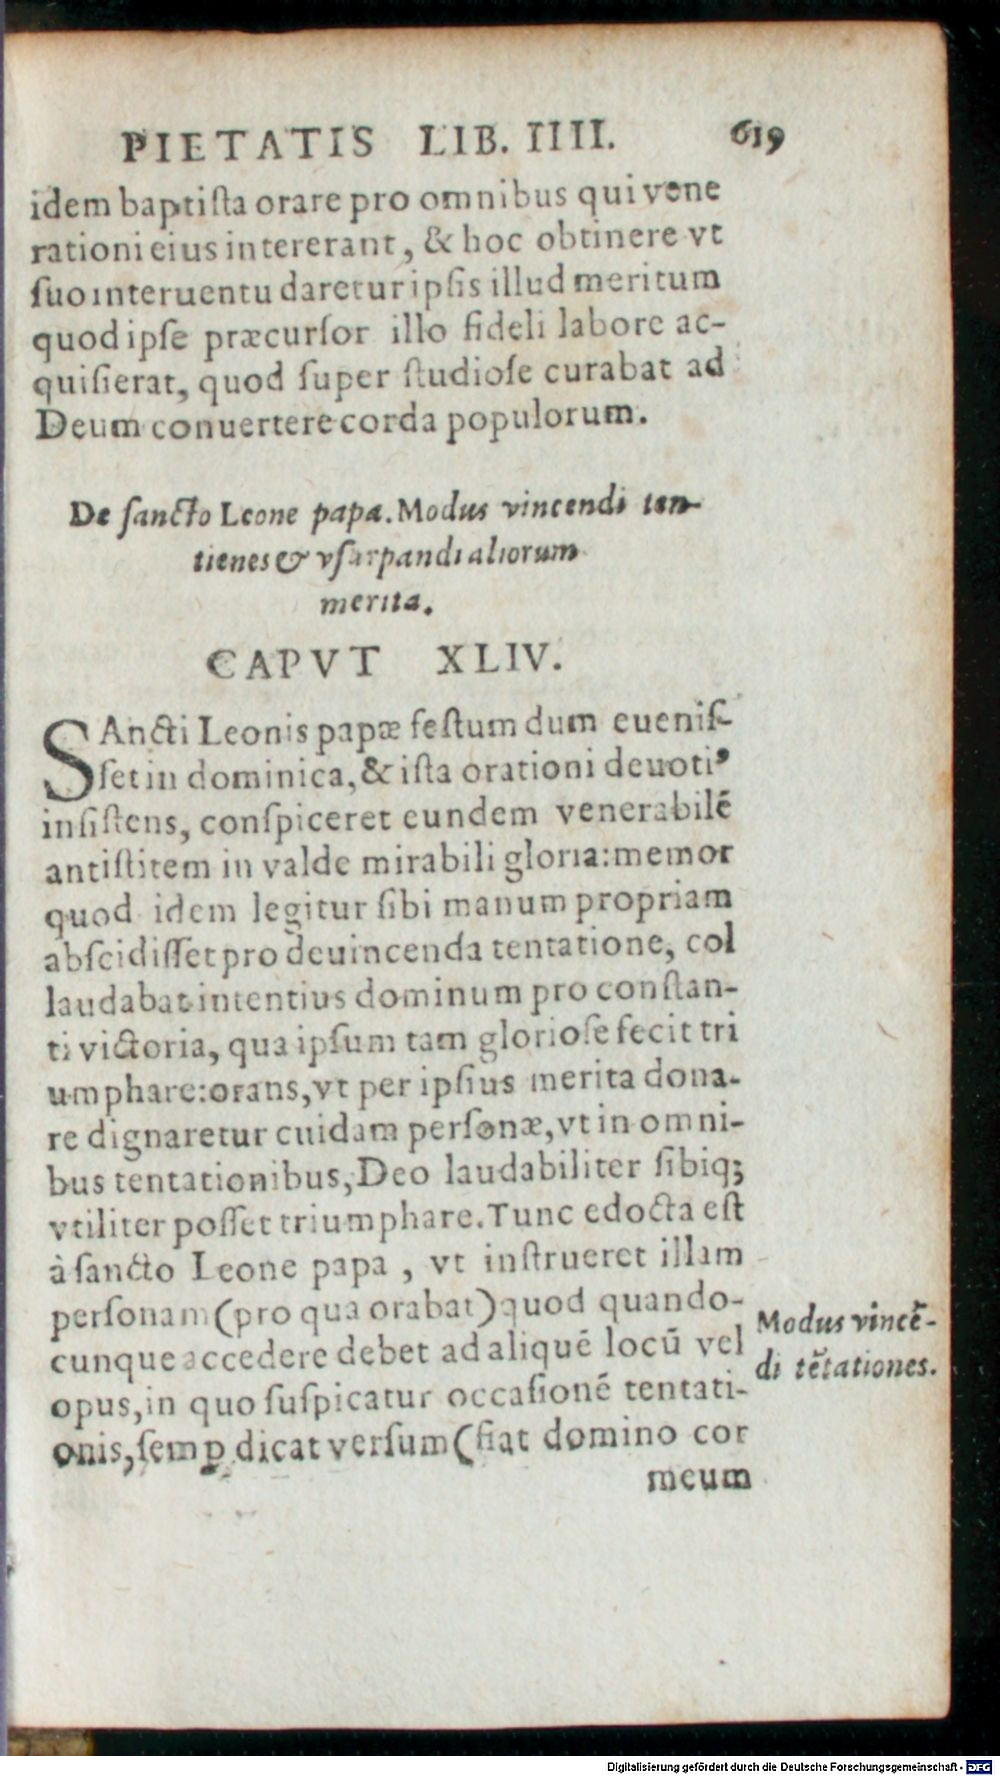 PIETATIS LIB. IIII. 619
idem baptiſta orare pro omnibus qui vene
rationi eius intererant, & hoc obtinere vt
ſuo interuentu daretur ipſis illud meritum
quod ipſe præcurſor illo fideli labore ac-
quiſierat, quod ſuper ſtudioſe curabat ad
Deum conuertere corda populorum.
De ſancto Leone papa. Modus vincendi ten-
tienes & vſurpandi aliorum
merita.
CAPVT XLIV.
SAncti Leonis papæ feſtum dum eueniſ-
ſet in dominica, & iſta orationi deuotiꝰ
inſiſtens, conſpiceret eundem venerabilē
antiſtitem in valde mirabili gloria: memor
quod idem legitur ſibi manum propriam
abſcidiſſet pro deuincenda tentatione, col
laudabat intentius dominum pro conſtan-
ti victoria, qua ipſum tam glorioſe fecit tri
umphare: orans, vt per ipſius merita dona-
re dignaretur cuidam perſonæ, vt in omni-
bus tentationibus, Deo laudabiliter ſibiq;
vtiliter poſſet triumphare. Tunc edocta eſt
à ſancto Leone papa, vt inſtrueret illam
perſonam (pro qua orabat) quod quando-
cunque accedere debet ad aliquē locū vel
opus, in quo ſuſpicatur occaſionē tentati-
onis, ſemꝑ dicat verſum (fiat domino cor
meum
Modus vincē-
di tētationes.
Digitalisierung gefördert durch die Deutsche Forschungsgemeinschaft - DFG